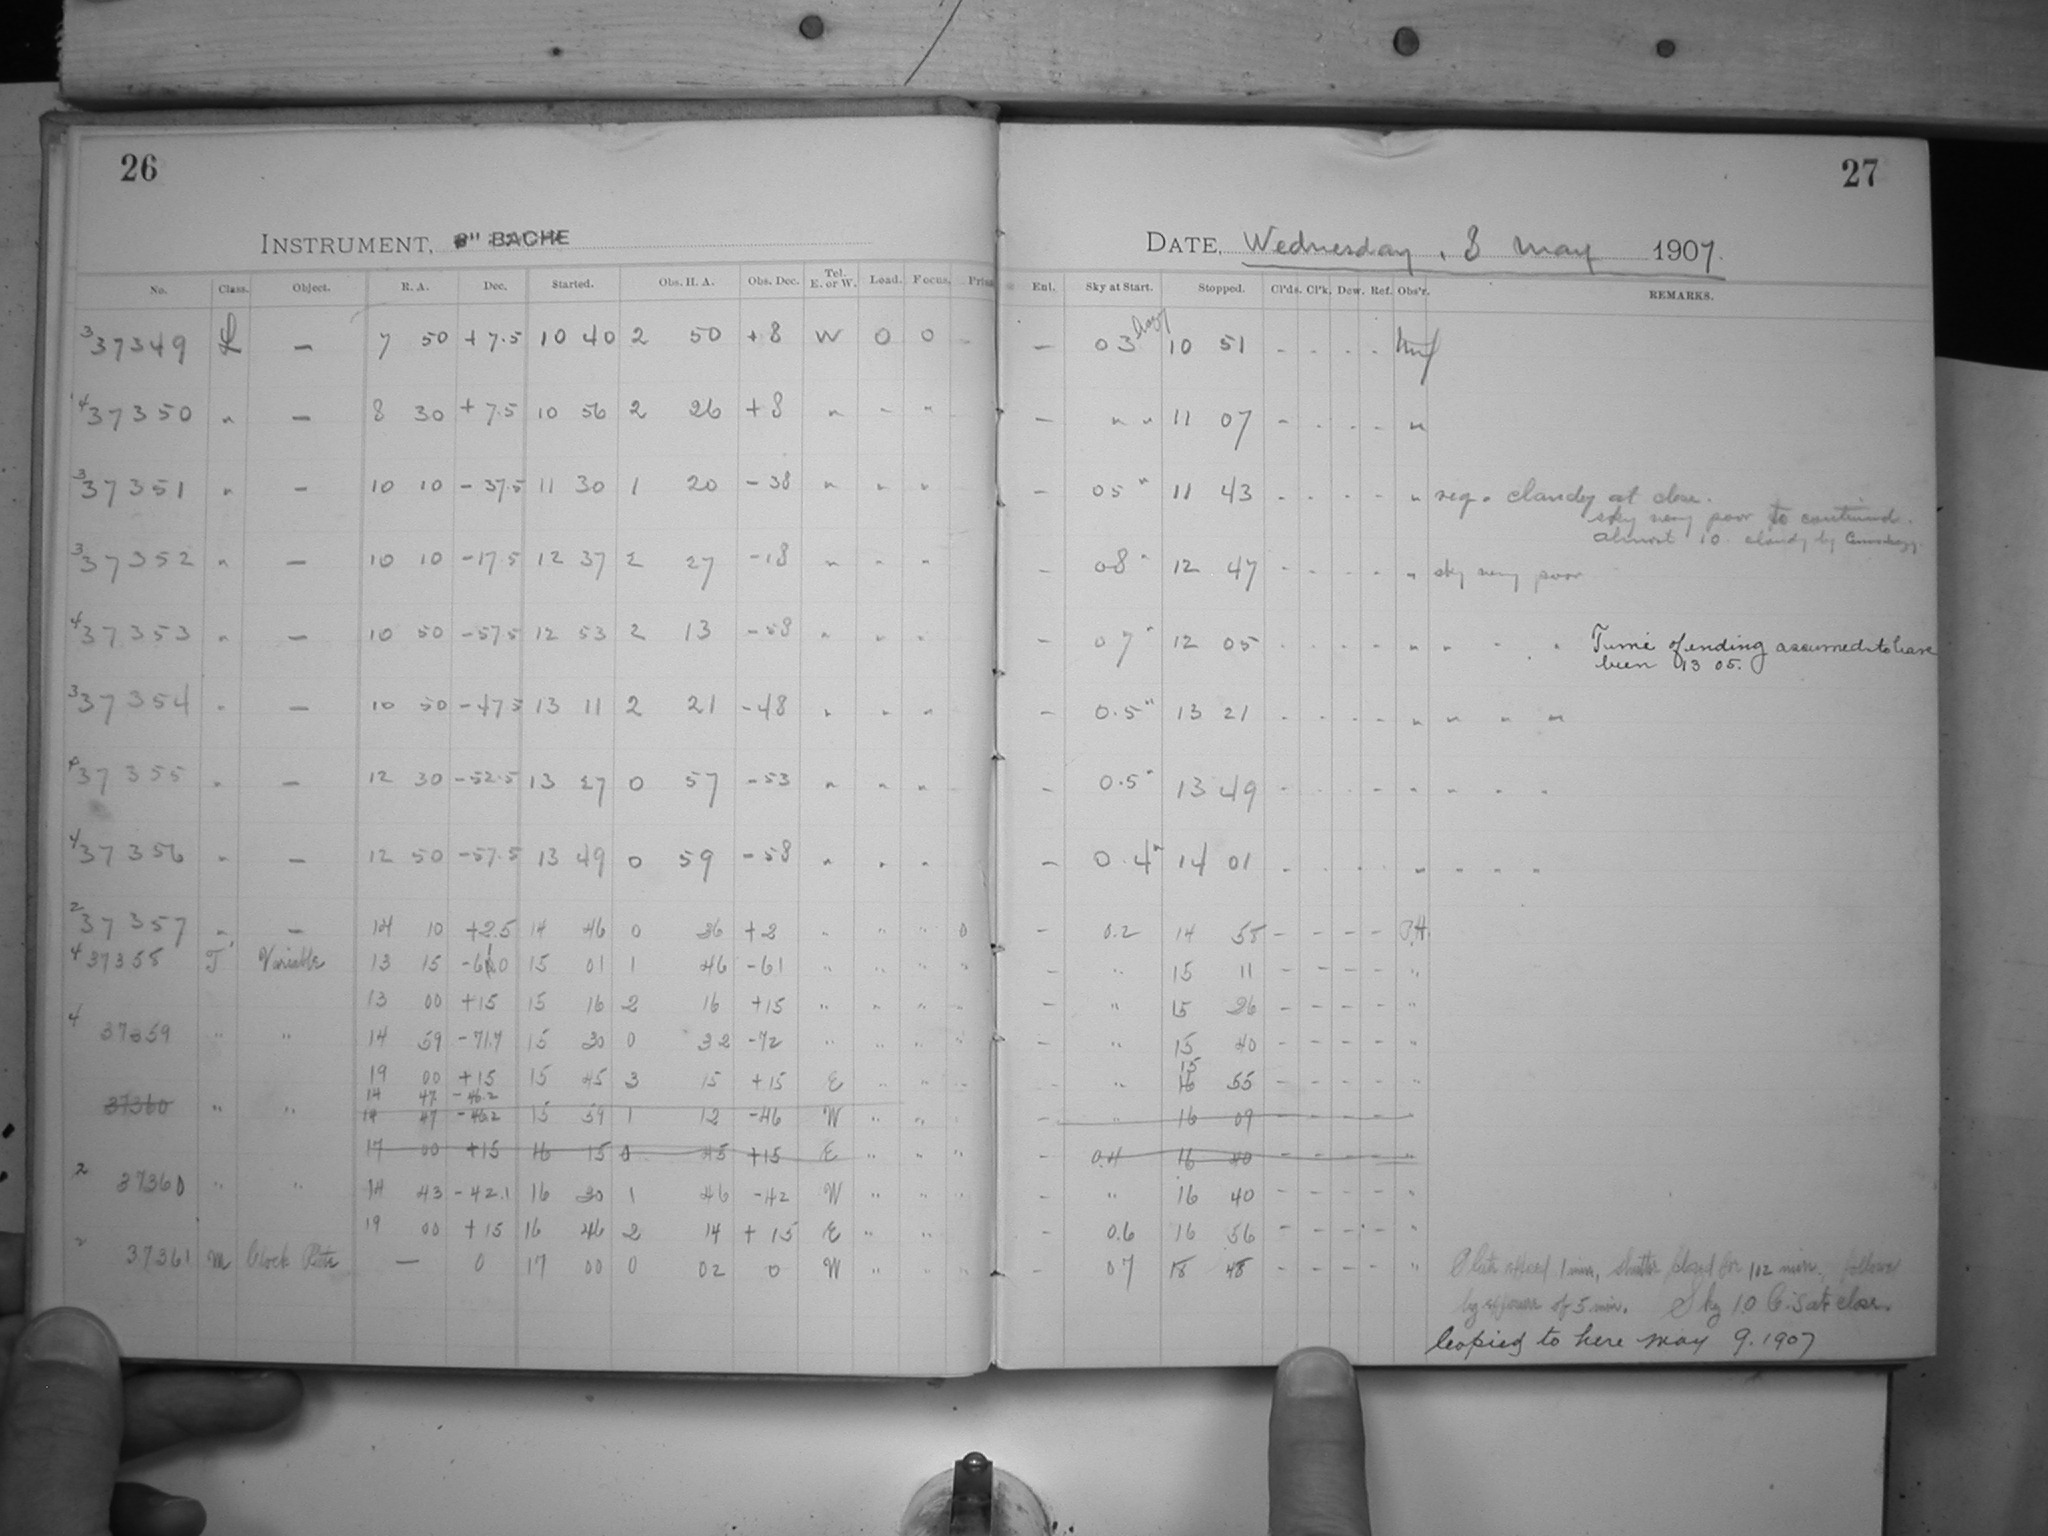 26
27
INSTRUMENT, 8" BACHE
DATE, Wednesday, 8 May 1907.
No. Class. Object. R. A. Dec. Started. Obs. H. A. Obs. Dec. Tel. E. or W. Load. Focus. Prism
Ent. Sky at Start. Stopped. Cl'ds. Cl'k. Dew. Ref. Obs'r. REMARKS.
3 37349 L — 7 50 +7.5 10 40 2 50 +8 W 0 0 - — 03 hazy 10 51 - - - -
4 37350 " — 8 30 +7.5 10 56 2 26 +8 " - " — " " 11 07 - - - - "
3 37351 " — 10 10 -37.5 11 30 1 20 -38 " " " — 05 " 11 43 - - - - " seq. cloudy at close.
sky very poor to continued.
almost 10 cloudy by
3 37352 " — 10 10 -17.5 12 37 2 27 -18 " " " — 08 " 12 47 - - - - " sky very poor
4 37353 " — 10 50 -57.5 12 53 2 13 -58 " " " — 07 " 12 05 - - - - " " " " Time of ending assumed to have
been 13 05.
3 37354 " — 10 50 -47.5 13 11 2 21 -48 " " " — 0.5 " 13 21 - - - - " " " "
37355 " — 12 30 -52.5 13 27 0 57 -53 " " " — 0.5 " 13 49 - - - - " " " "
4 37356 " — 12 50 -57.5 13 49 0 59 -58 " " " — 0.4 " 14 01 - - - - " " " "
2 37357 " — 14 10 +2.5 14 46 0 36 +2 " " " 0 — 0.2 14 55 - - - - P.H.
4 37358 T Variable 13 15 -61.0 15 01 1 46 -61 " " " " — " 15 11 - - - - "
13 00 +15 15 16 2 16 +15 " " " - — " 15 26 - - - - "
4 37359 " " 14 59 -71.7 15 30 0 32 -72 " " " " — " 15 40 - - - - "
15
19 00 +15 15 45 3 15 +15 E " " - - " 16 55 - - - - "
14 47 -46.2
37360 " " 14 47 -46.2 15 59 1 12 -46 W " " " — " 16 09 - - - - "
17 00 +15 16 15 0 45 +15 E " " " — 0.4 16 40 - - - - "
2 37360 " " 14 43 -42.1 16 30 1 46 -42 W " " " — " 16 40 - - - - "
19 00 +15 16 46 2 14 +15 E " " — 0.6 16 56 - - - - "
2 37361 M Clock Rate — 0 17 00 0 02 0 W " " " — 07 18 48 - - - - " Plate exposed 1 min, shutter closed for 102 min. followed
by exposure of 5 min. Sky 10 Ci.S at close.
Copied to here May 9. 1907